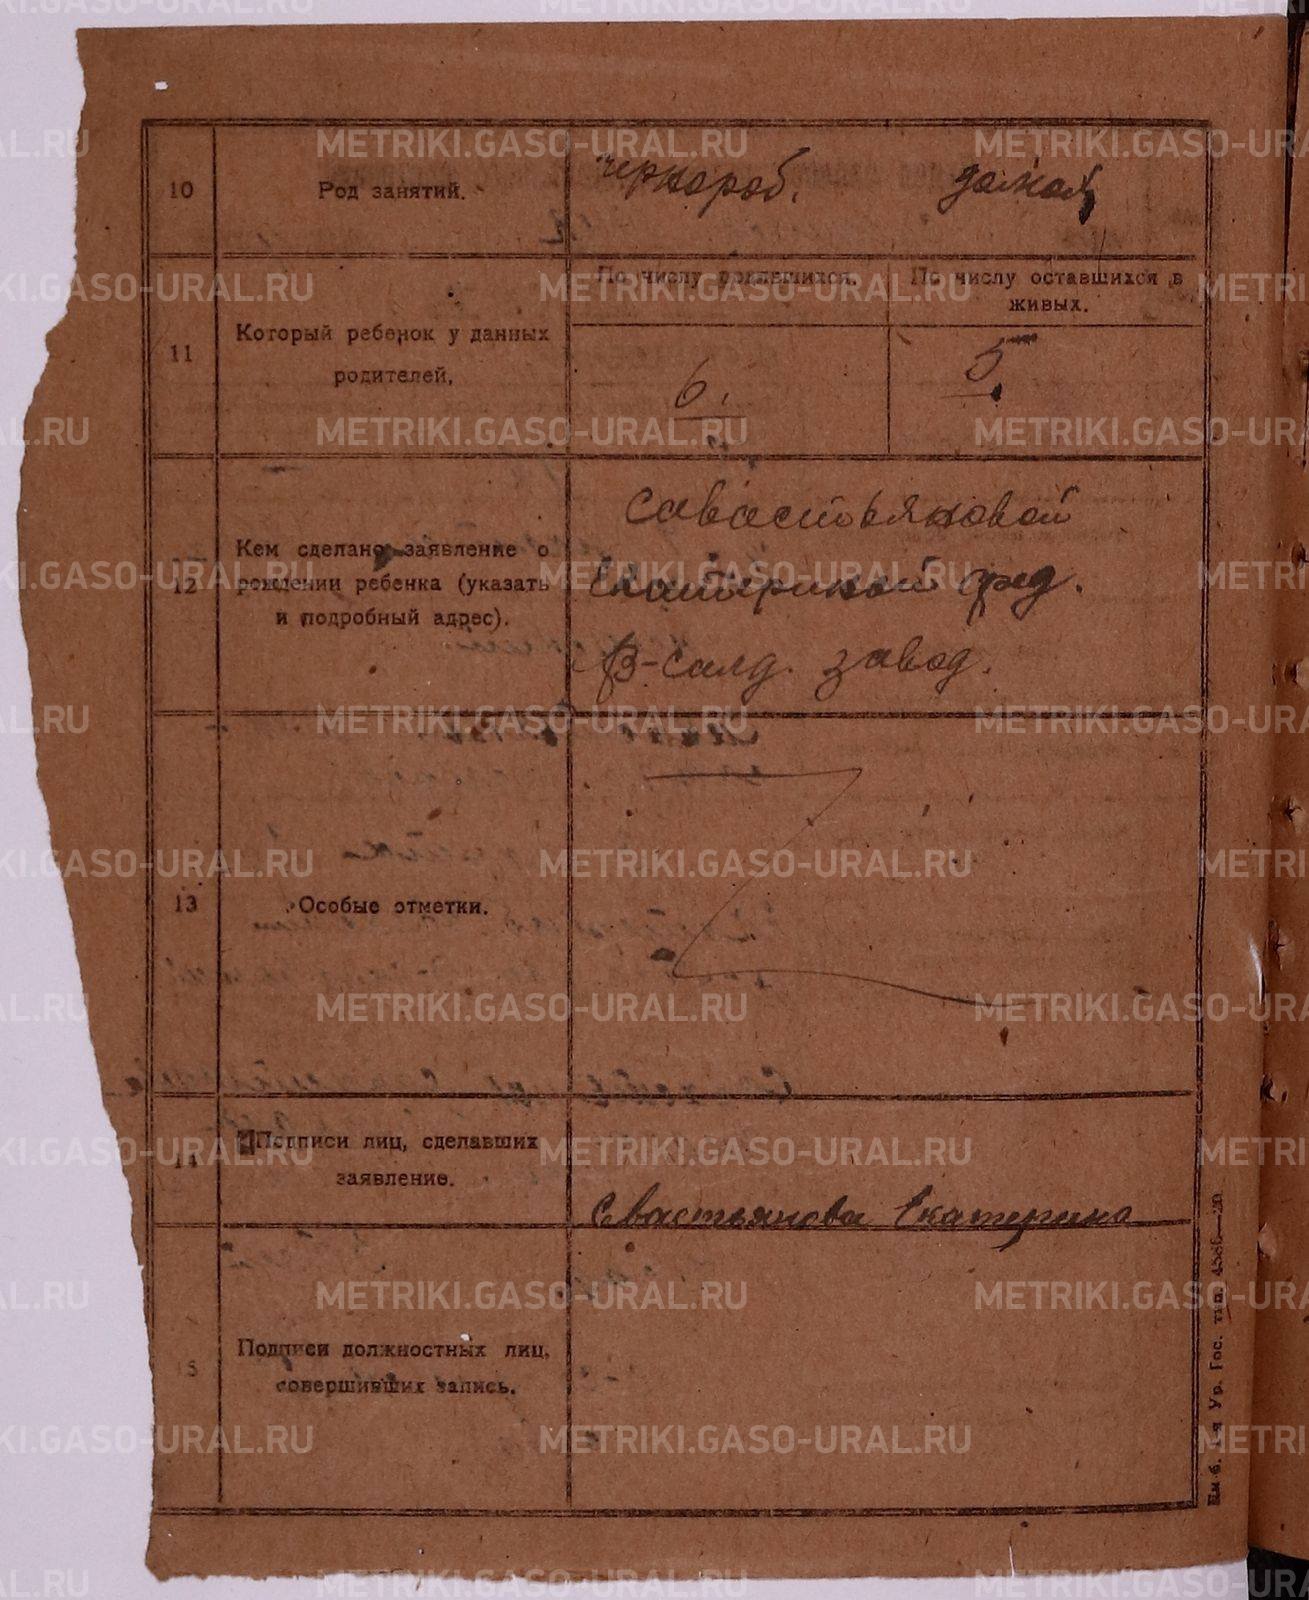 10
Род занятий.
чернораб. домохоз
11
Который ребенок у данных
родителей.
По числу родившихся.
По числу оставшихся в
живых.
6.
5
12
Кем сделано заявление о
рождении ребенка (указать
и подробный адрес).
Савастьяновой
Екатериной
В-Салд. завод.
13
Особые отметки.
14
Подписи лиц, сделавших
заявление.
Свастьянова Екатерина
15
Подписи должностных лиц,
совершивших запись.
Ур. Гос. тип. 4586—20
METRIKI.GASO-URAL.RU